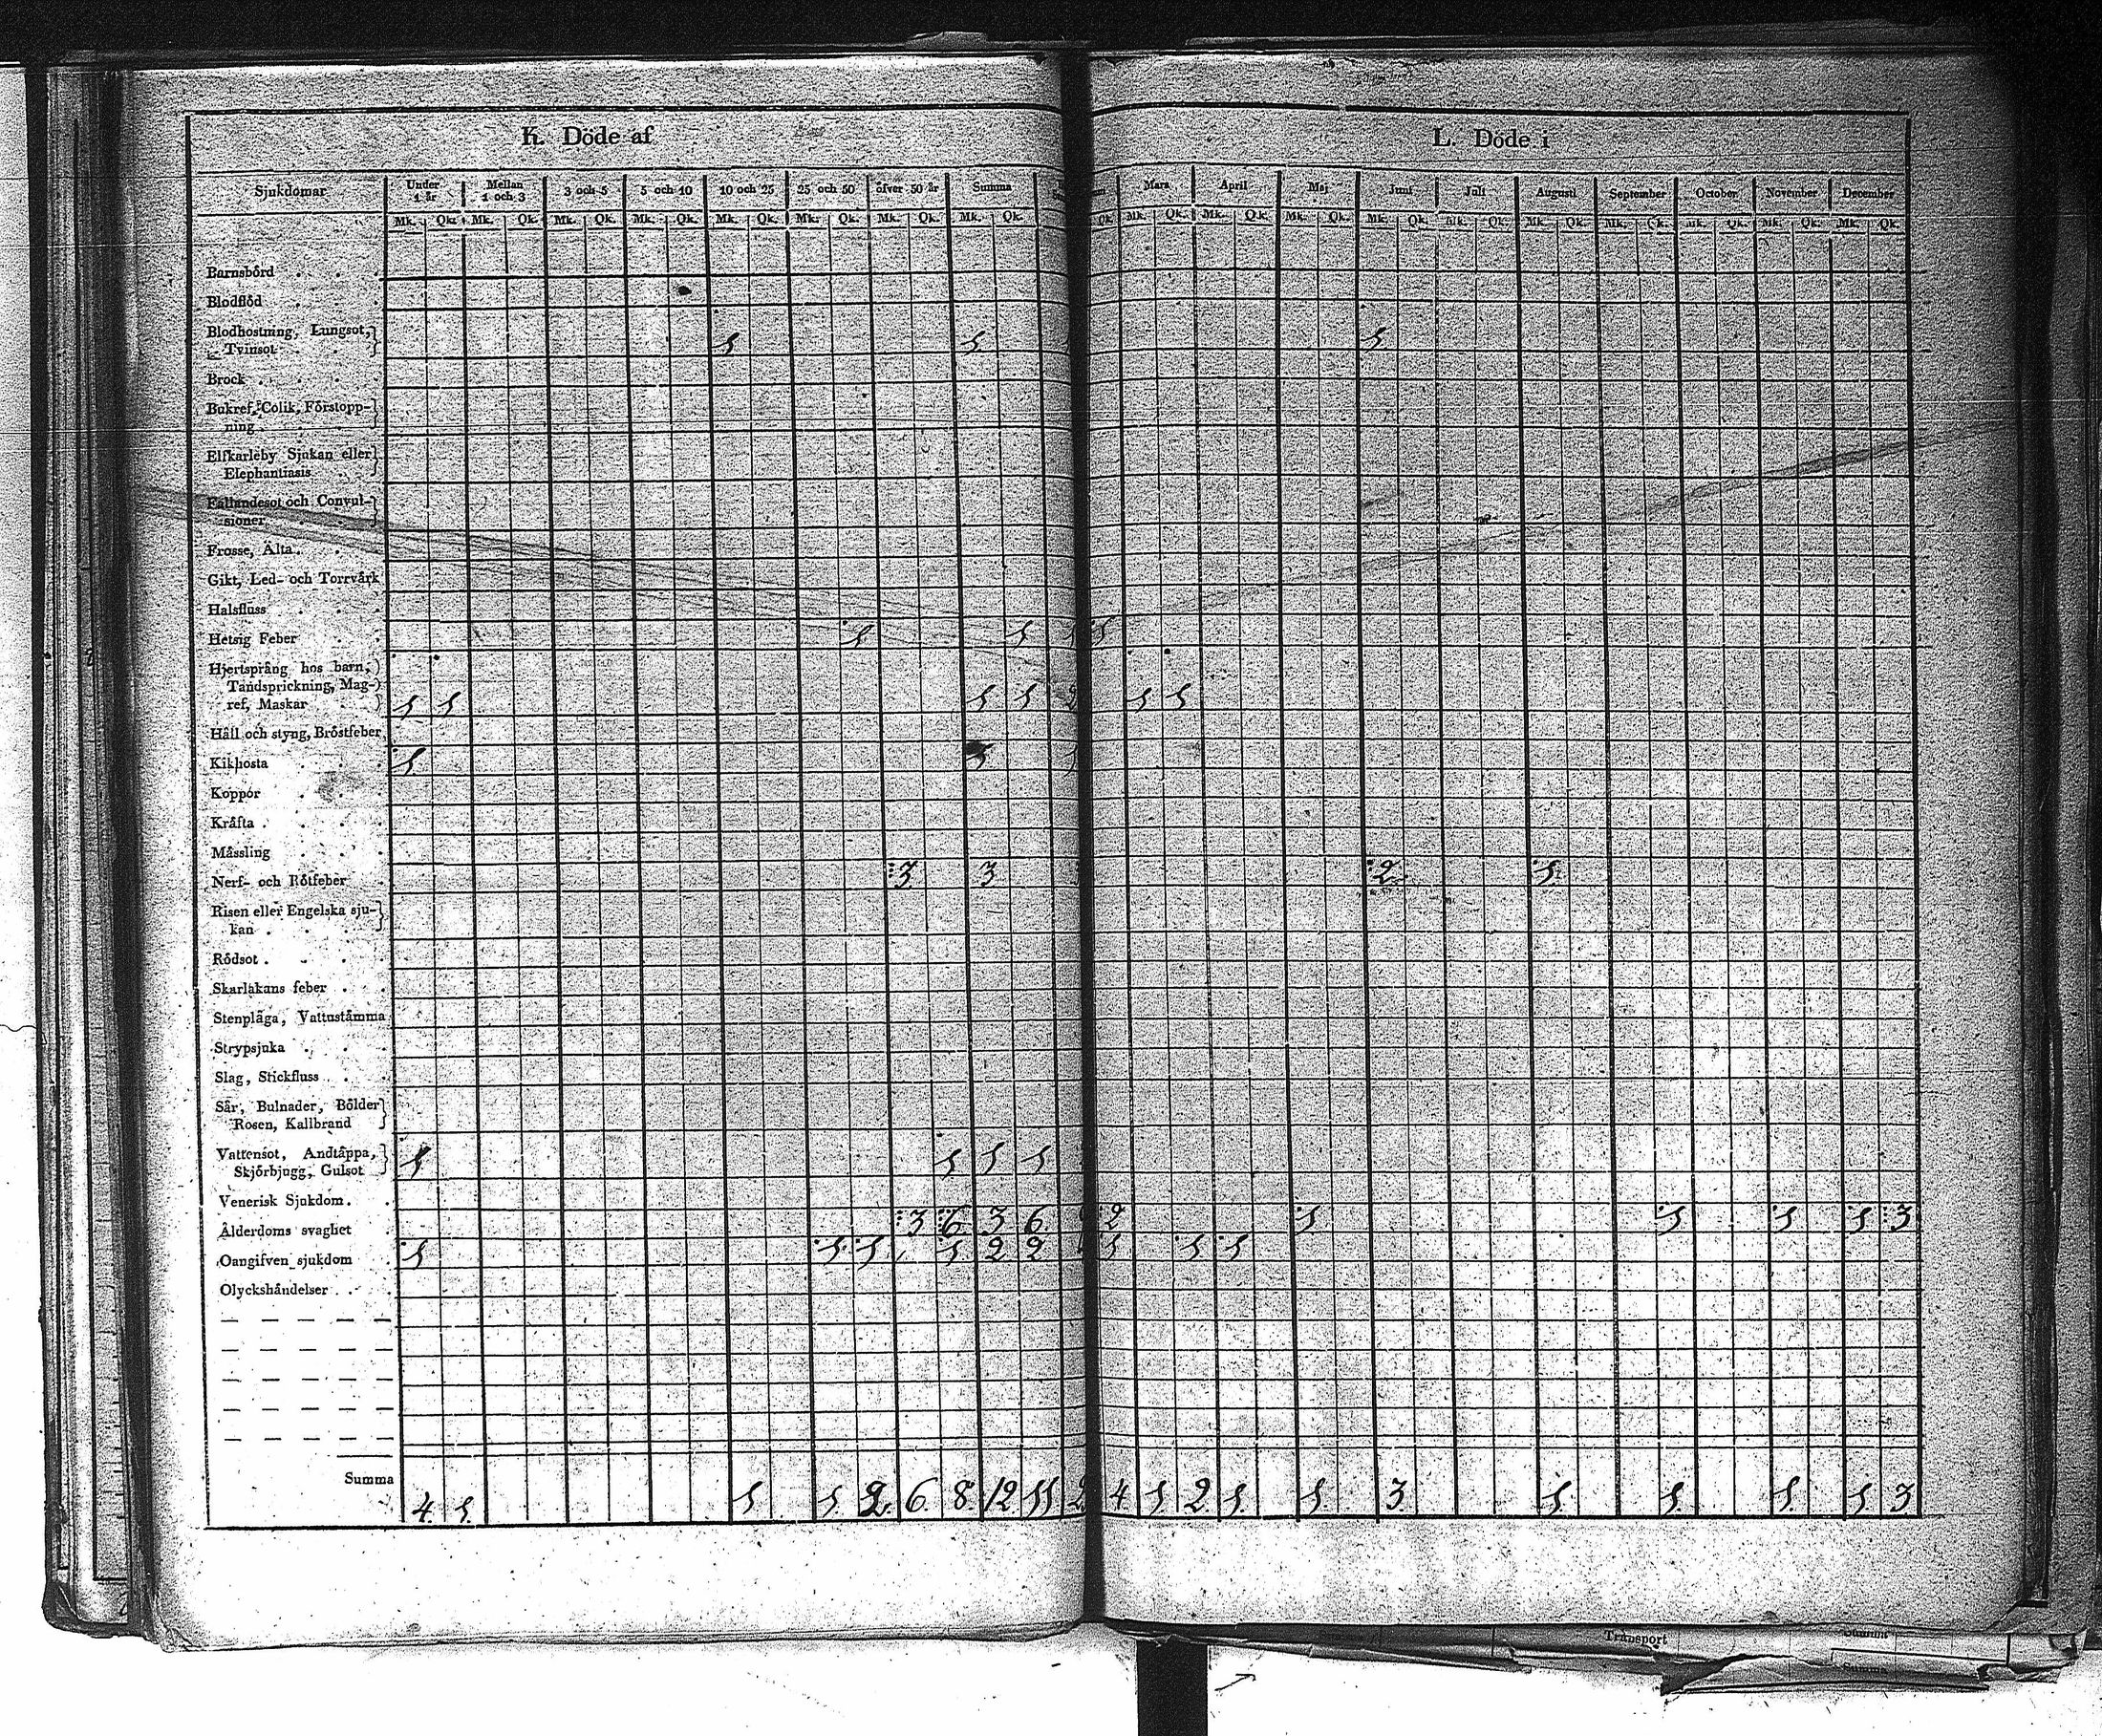 K. Döde af
L. Döde i
Sjukdomar Under 1 år Mellan 1 och 3 3 och 5 5 och 10 10 och 25 25 och 50 öfver 50 år Summa Mars April Maj Juni Juli Augusti September October November December
Mk. Qk. Mk. Qk. Mk. Qk. Mk. Qk. Mk. Qk. Mk. Qk. Mk. Qk. Mk. Qk. Qk. Mk. Qk. Mk. Qk. Mk. Qk. Mk. Qk. Mk. Qk. Mk. Qk. Mk. Qk. Mk. Qk. Mk. Qk. Mk. Qk.
Barnsbörd
Blodflöd
Blodhostning, Lungsot,
Tvinsot 1 1 1
Brock
Bukref, Colik, Förstopp-
ning
Elfkarleby Sjukan eller
Elephantiasis
Fallandesot och Convul-
sioner
Frossa, Älta
Gikt, Led- och Torrvårk
Halsfluss
Hetsig Feber 1 1 1 1
Hjertsprång hos barn,
Tandsprickning, Mag-
ref, Maskar 1 1 1 1 2 1 1
Håll och styng, Bröstfeber
Kikhosta 1 1 1
Koppor
Kråfta
Måssling
Nerf- och Rötfeber 3 3 2 1
Risen eller Engelska sju-
kan
Rödsot
Skarlakans feber
Stenplåga, Vattuståmma
Strypsjuka
Slag, Stickfluss
Sår, Bulnader, Bölder
Rosen, Kallbrand
Vattensot, Andtåppa,
Skjörbjugg, Gulsot 1 1 1 1
Venerisk Sjukdom
Ålderdoms svaghet 3 6 3 6 2 1 1 1 1 3
Oangifven sjukdom 1 1 1 1 2 2 1 1 1
Olyckshåndelser
Summa 4 1 1 1 2 6 8 12 11 2 4 1 2 1 1 3 1 1 1 1 3
Transport
Summa
Summa